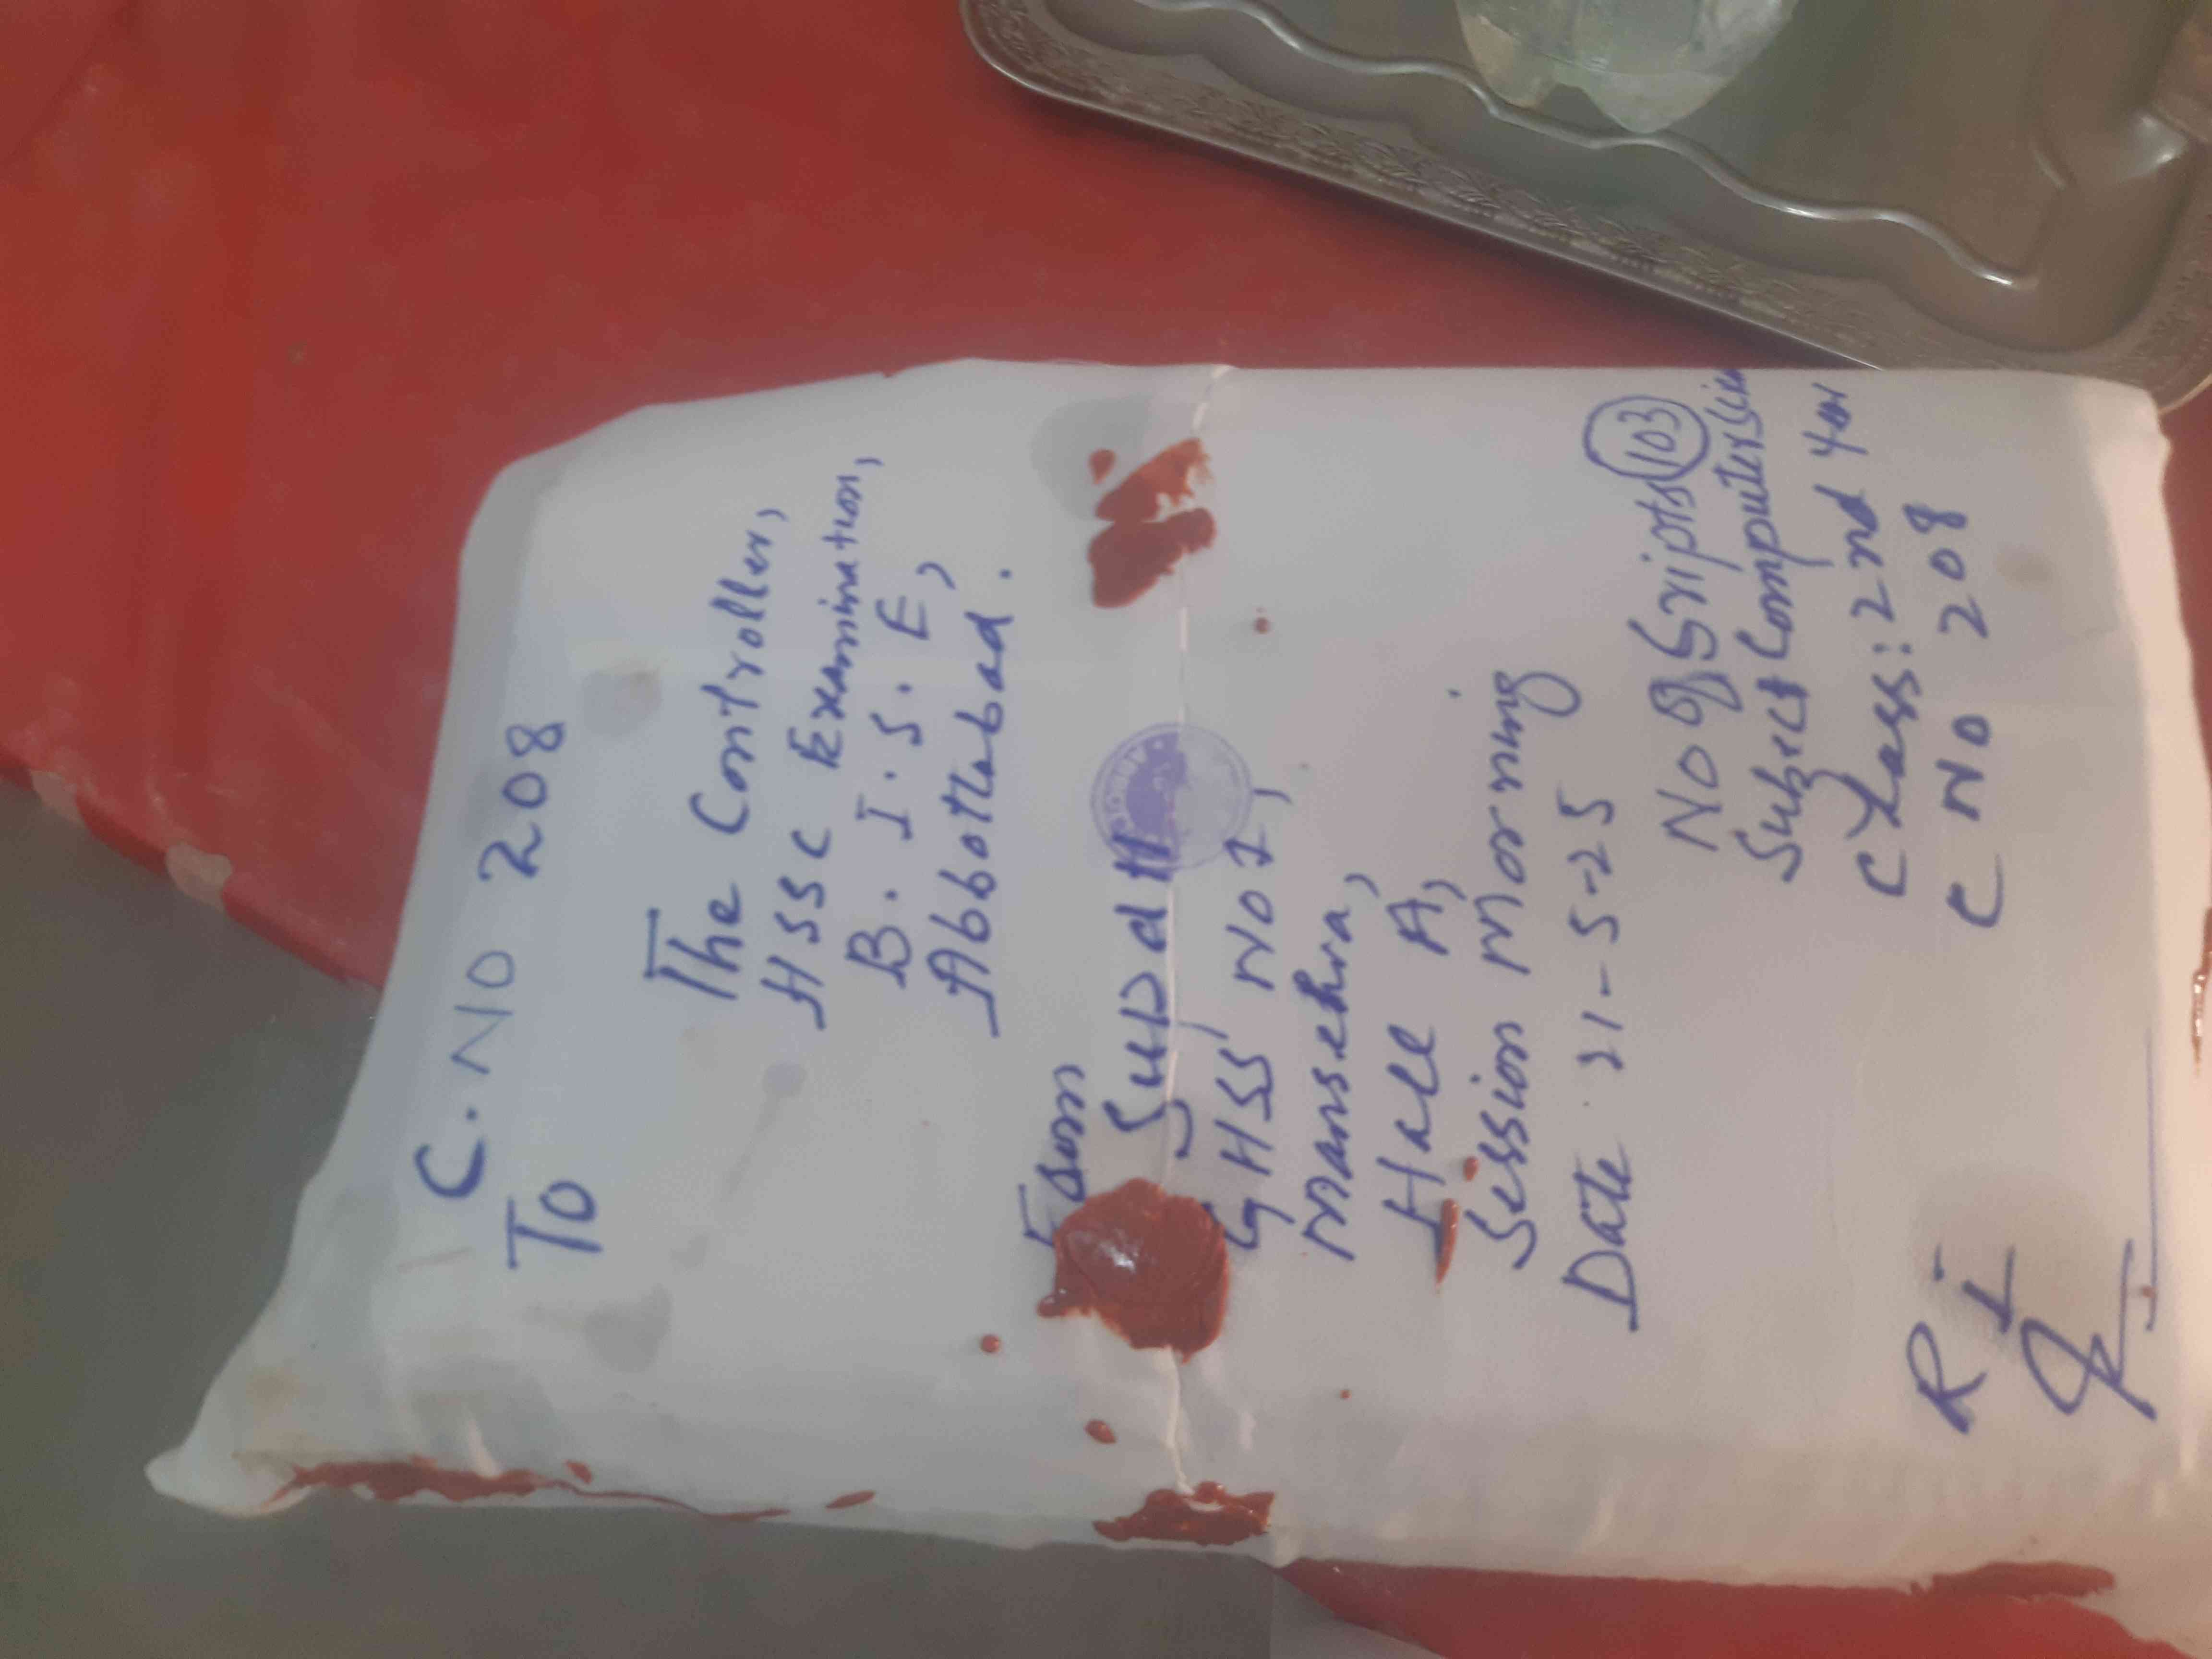 C. NO 208
To
The Controller,
HSSC Examination,
B. I. S. E,
Abbottabad.
From
Supdtt
GHSS No 1,
Mansehra,
Hall A,
Session Morning
Date 21-5-25
No of Scripts 103
Subject Computer Scie
Class: 2nd year
C No 208